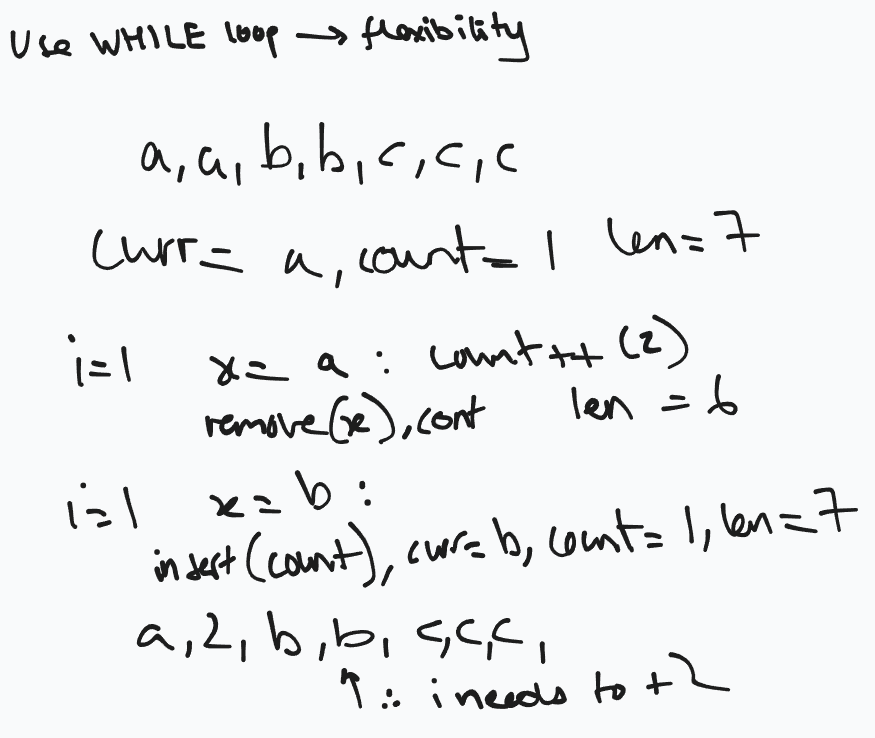 Use WHILE loop → flexibility
a, a, b, b, c, c, c
Curr = a, count = 1 len = 7
i=1 x = a : count ++ (2)
remove(x), cont len = 6
i=1 x = b :
insert(count), curr = b, count = 1, len = 7
a, 2, b, b, c, c, c,
↑ ∴ i needs to +2